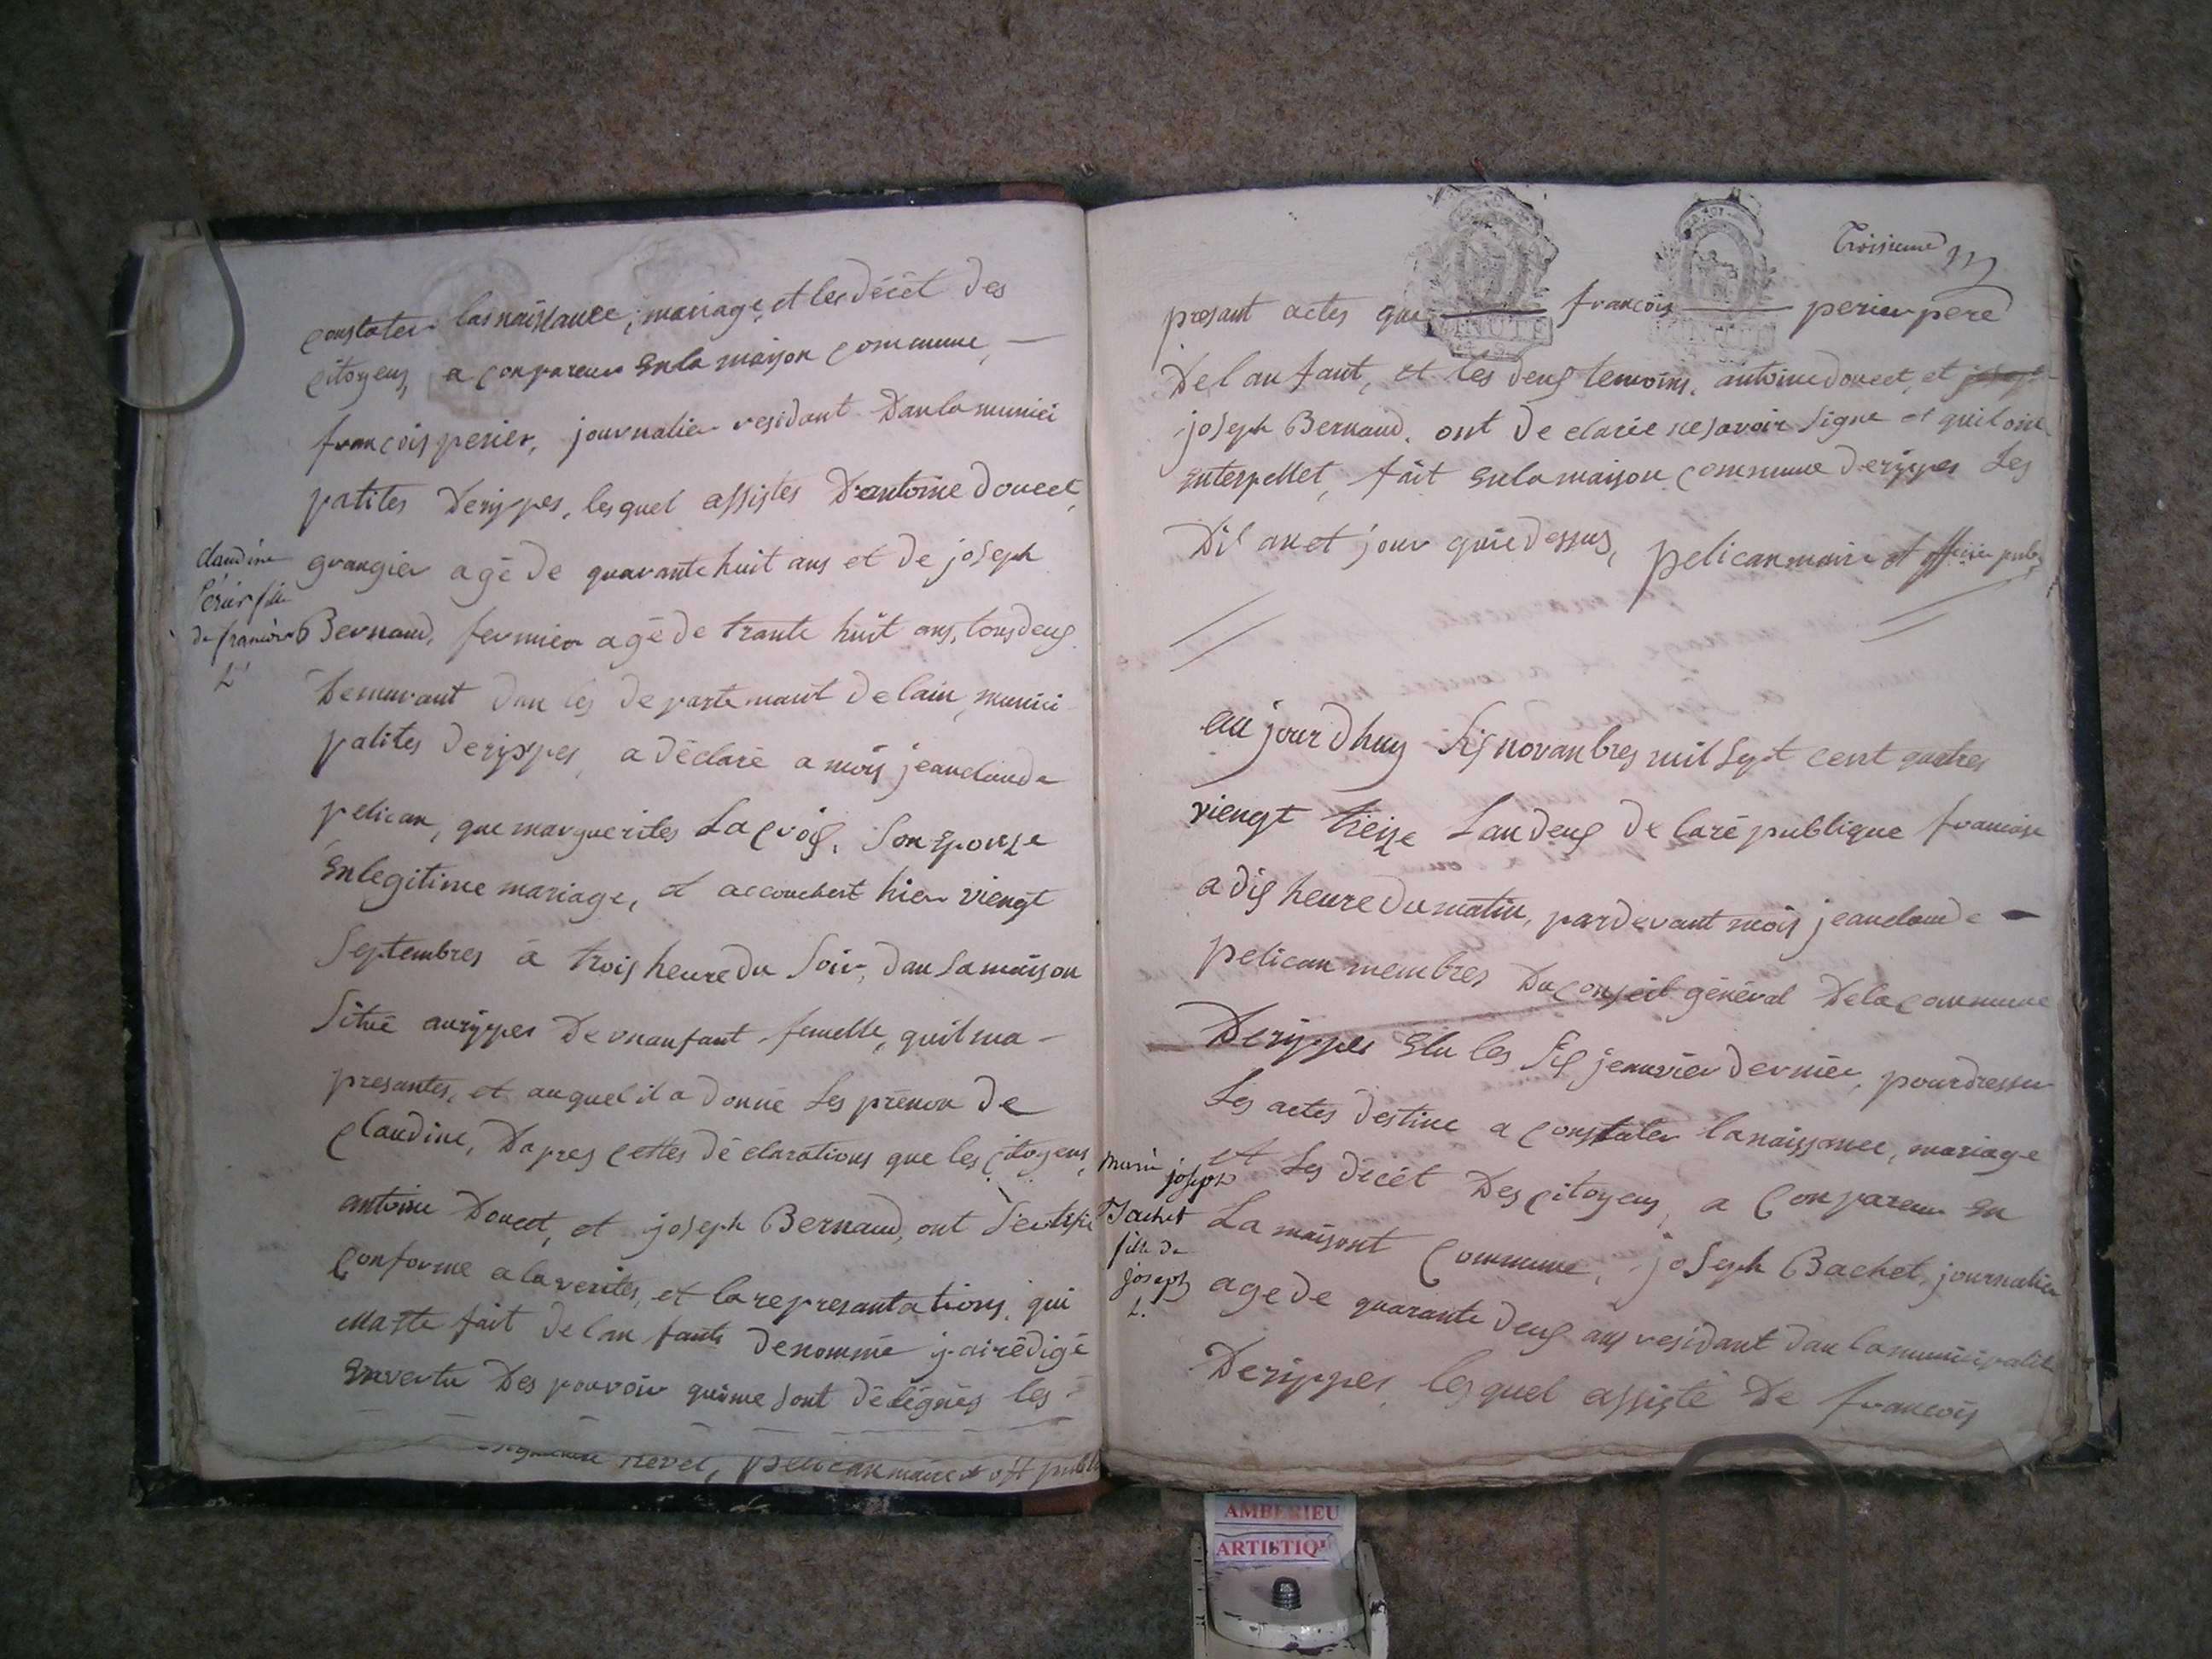 constater lasnaissance, mariage, et les décét des
citoyens, a conpareus en la maison commune, —
françois perier, journalier residant dan la munici
palites derippes, lesquel assistes d'antoine doucet,
grangier agé de quarante huit ans et de joseph
Claudine
Périer fille
de francois
L.
Bernaud, fermier agé de trante huit ans, tous deux
demurant dan les departemant delain, munici
palites derippes, a déclaré a mois jeanclaude
pelican, que marguerites Lacroix, Son Epouze
en legitime mariage, et accouchert hier viengt
Septembres à trois heure du Soir, dan Samaison
Situé aurippes de un anfant femelle, quil ma
presantes, et auquel il a donné Les prénon de
Claudine, dapres cettes déclarations que les citoyens,
antoine Doucet, et joseph Bernaud, ont Sertifié
conforme a la verites, et la represantations, qui
ma ete fait delan fants denommé jai rédigé
en vertu des pouvoir qui me sont délégués les
Nevel, pelican maire et off public
Troisieme
presant actes que françois perier pere
Delanfant, et les deux temoins, antoine doucet, et joseph
joseph Bernaud, ont declarée ne savoir Signe et quil onte
enterpellet, fait en la maison commune derippes Les
Dit an et jour quie dessus, pelican maire et officier public
au jourdhuy Six novanbres mil Sept cent quatres
viengt treize Landeux de la république francaise
a dix heure du matin, pardevant mois jeanclaude
pelican membres du conseil général de la commune
Derippes Elu les Six jeanvier dernier, pour dresser
Les actes destine a constater la naissance, mariage
et Les décét des citoyens, a Conpareu en
La maisont Commune, joseph Bachet, journalier
Marie
joseph
Bachet
fille de
joseph
L.
age de quarante deux ans residant dan la municipalite
Derippes, lesquel assisté de francois
AMBERIEU
ARTISTIQU